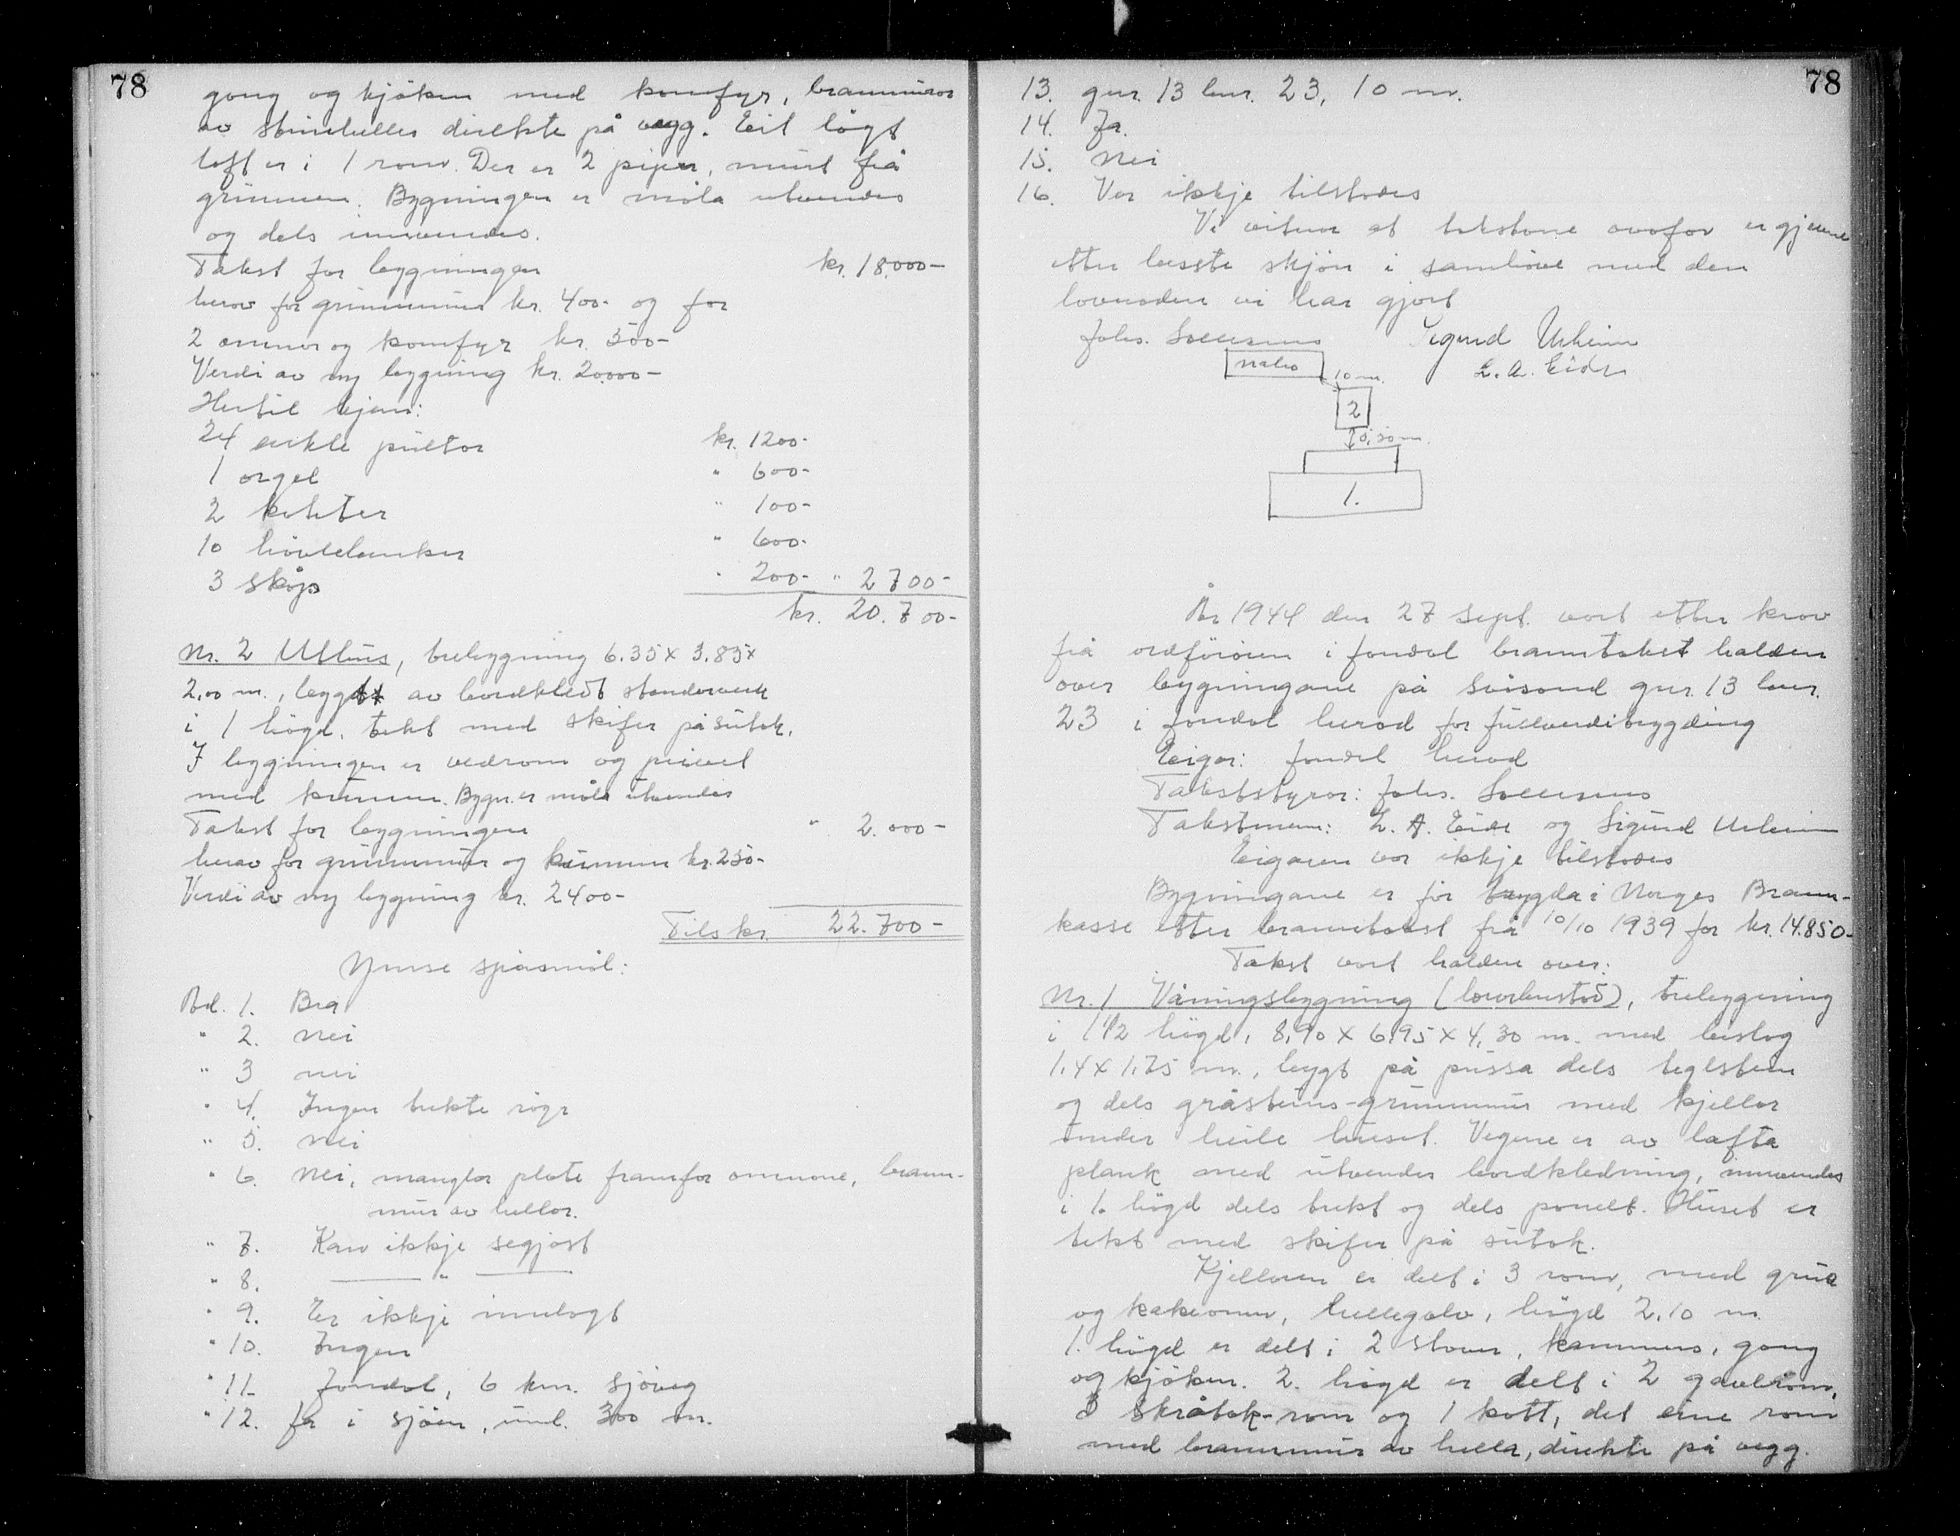 78
gong og kjøken med komfyr, brannmurar
av steinheller direkte på vegg. Eit lågt
loft er i 1 rom. Der er 2 piper, murt frå
grunnen. Bygningen er måla utvendes
og dels innvendes.
Takst for bygningen kr. 18.000-
herav for grunnmur kr. 400- og for
2 omnar og komfyr kr. 500-
Verdi av ny bygning kr. 20.000-
Hertil kjem:
24 enkle pultar kr. 1200-
1 orgel " 600-
2 kateter " 100-
10 høvlebenker " 600-
3 skåp " 200- " 2700-
kr. 20.700-
Nr. 2 Uthus, trebygning 6.35 x 3.85 x
2,00 m., bygt av bordkledt stenderverk
i 1 høgd, tekt med skifer på sutak.
I bygningen er vedrom og privet
med kummen. Bygn. er måla utvendes
Takst for bygningen " 2.000-
herav for grunnmur og kummen kr. 250-
Verdi av ny bygning kr. 2400-
Tils kr. 22.700-
Ymse spørsmål:
Ad. 1. Bra
" 2. nei
" 3 nei
" 4. Ingen trekte røyr
" 5. nei
" 6. Nei, manglar plate framfor omnane, brann-
mur av hellar.
" 7. Kan ikkje segjast
" 8. — " —
" 9. Er ikkje innlagt
" 10. Ingen
" 11. Jondal, 6 km. sjøveg
" 12. Ja i sjøen, uml. 300 m.
78
13. gnr. 13 bnr. 23, 10 m.
14. Ja.
15. Nei
16. Var ikkje tilstades
Vi vitnar at takstane ovafor er gjevne
etter beste skjøn i samhøve med den
lovnaden vi har gjort
Johs. Sigurd Urheim
L. A. Eide
nabo
10 m.
2
1.
År 1944 den 27 sept. vart etter krav
frå ordføraren i Jondal branntakst halden
over bygningane på Svåsand gnr. 13 bnr.
23 i Jondal herad for fullverditrygding
Eigar: Jondal herad
Takststyrar: Johs.
Takstmenn: L. A. Eide og Sigurd Urheim
Eigaren var ikkje tilstades
Bygningane er før trygda i Norges Brann-
kasse etter branntakst frå 10/10 1939 for kr. 14.850-
Takst vart halden over:
Nr. 1 Våningsbygning (lærarbustad), trebygning
i 1 1/2 høgd, 8,90 x 6,95 x 4,30 m. med bislag
1,4 x 1,75 m., bygt på pussa dels teglstein
og dels gråsteins-grunnmur med kjellar
under heile huset. Vegene er av lafta
plank med utvendes bordkledning, innvendes
i 1. høgd dels trekt og dels panelt. Huset er
tekt med skifer på sutak.
Kjellaren er delt i 3 rom, med grue
og kakeomn, hellegolv, høgd 2,10 m.
1. høgd er delt i 2 stover, kammers, gong
og kjøken. 2. høgd er delt i 2 gavlrom,
3 skråtak-rom og 1 kott, det eine rom
med brannmur av hella, direkte på vegg.